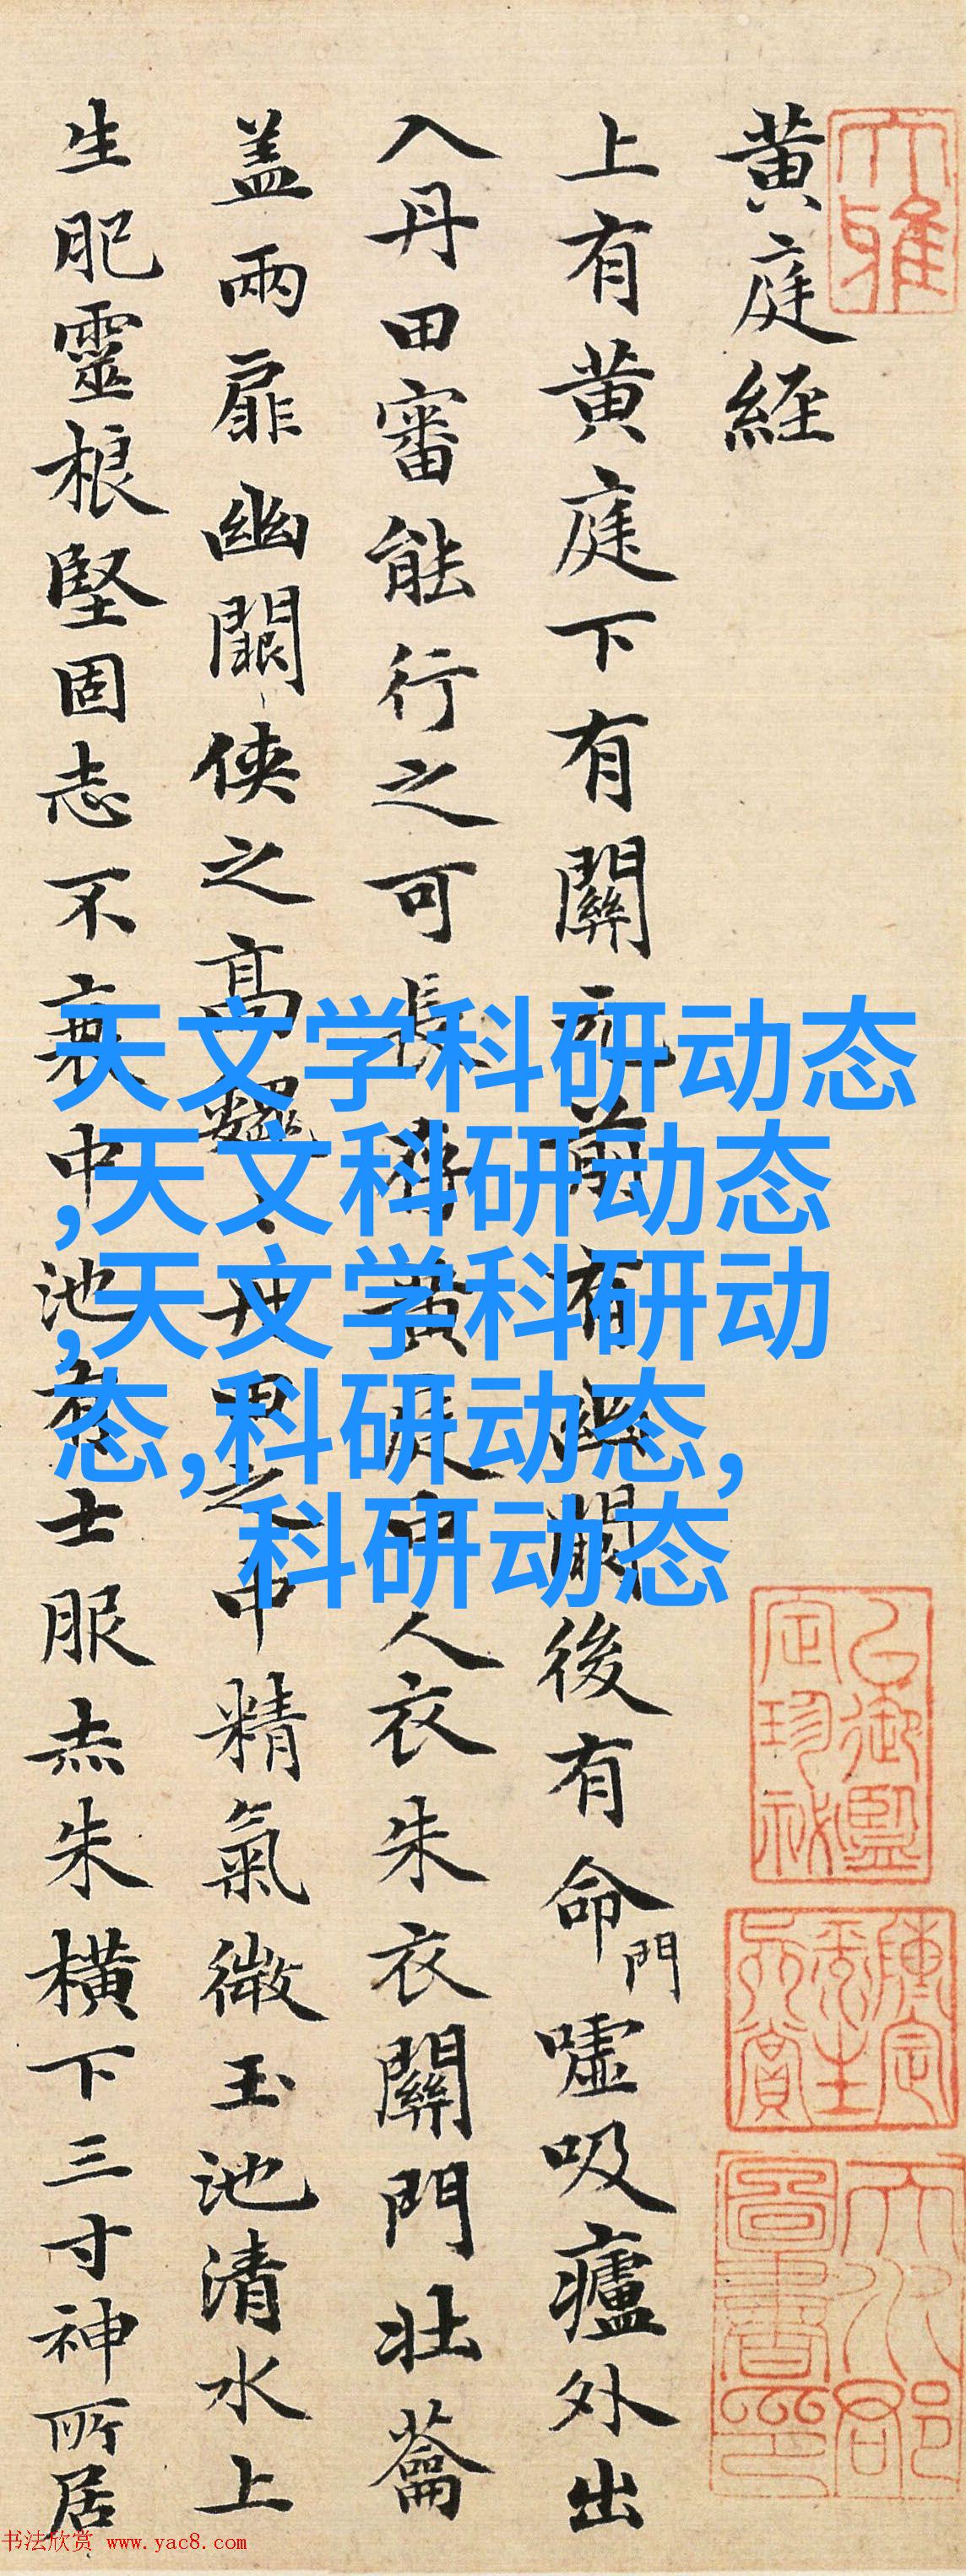 黄庭經
上有黄庭下有關元前有幽闕後有命門噓吸廬外出
入丹田審能行之可長存黄庭中人衣朱衣關門壮蘥
盖兩扉幽闕侠之高魏丹田之中精氣微玉池清水上
生肥靈根堅固志不衰中池有士服赤朱横下三寸神所居
天文学科研动态
,天文科研动态
,天文学科研动
态,科研动态,
科研动态
大雅
乙御監
定珍秘
书法欣赏 www.yac8.com